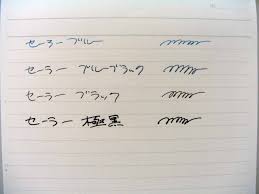 セーラー ブルー
セーラー ブルーブラック
セーラー ブラック
セーラー 極黒